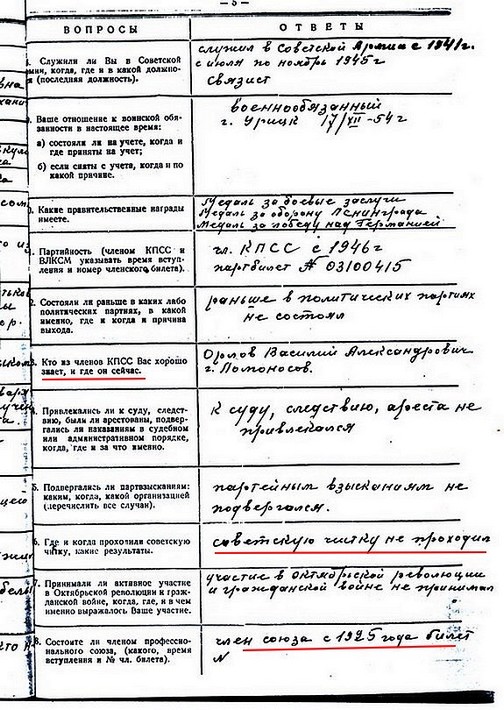 — 5 —
ВОПРОСЫ
ОТВЕТЫ
Служили ли Вы в Советской
мии, когда, где и в какой должно-
(последняя должность).
служил в Советской Армии с 1941г.
с июля по ноябрь 1945г
Связист
Ваше отношение к воинской обя-
занности в настоящее время:
а) состояли ли на учете, когда и
где приняты на учет;
б) если сняты с учета, когда и по
какой причине.
военнообязанный
г. Урицк 17/XII-54г
Какие правительственные награды
имеете.
Медаль за боевые заслуги
Медаль за оборону Ленинграда
Медаль за победу над Германией
Партийность (членом КПСС и
ВЛКСМ указывать время вступ-
ления и номер членского билета).
чл. КПСС с 1946г
партбилет № 03100415
2. Состояли ли раньше в каких либо
политических партиях, в какой
именно, где и когда и причина
выхода.
раньше в политических партиях
не состоял
3. Кто из членов КПСС Вас хорошо
знает, и где он сейчас.
Орлов Василий Александрович
г. Ломоносов.
4. Привлекались ли к суду, следст-
вию, были ли арестованы, подвер-
гались ли наказаниям в судебном
или административном порядке,
когда, где и за что именно.
К суду, следствию, ареста не
привлекался
5. Подвергались ли партвзысканиям:
каким, когда, какой организацией
(перечислить все случаи).
партейным взысканиям не
подвергался.
6. Где и когда проходили советскую
чистку, какие результаты.
советскую чистку не проходил
7. Принимали ли активное участие
в Октябрьской революции и граж-
данской войне, когда, где, и в чем
именно выражалось Ваше участие.
участие в Октябрьской революции
и гражданской войне не принимал
8. Состоите ли членом профессио-
нального союза, (какого, время
вступления и № чл. билета).
член союза с 1925 года билет
N